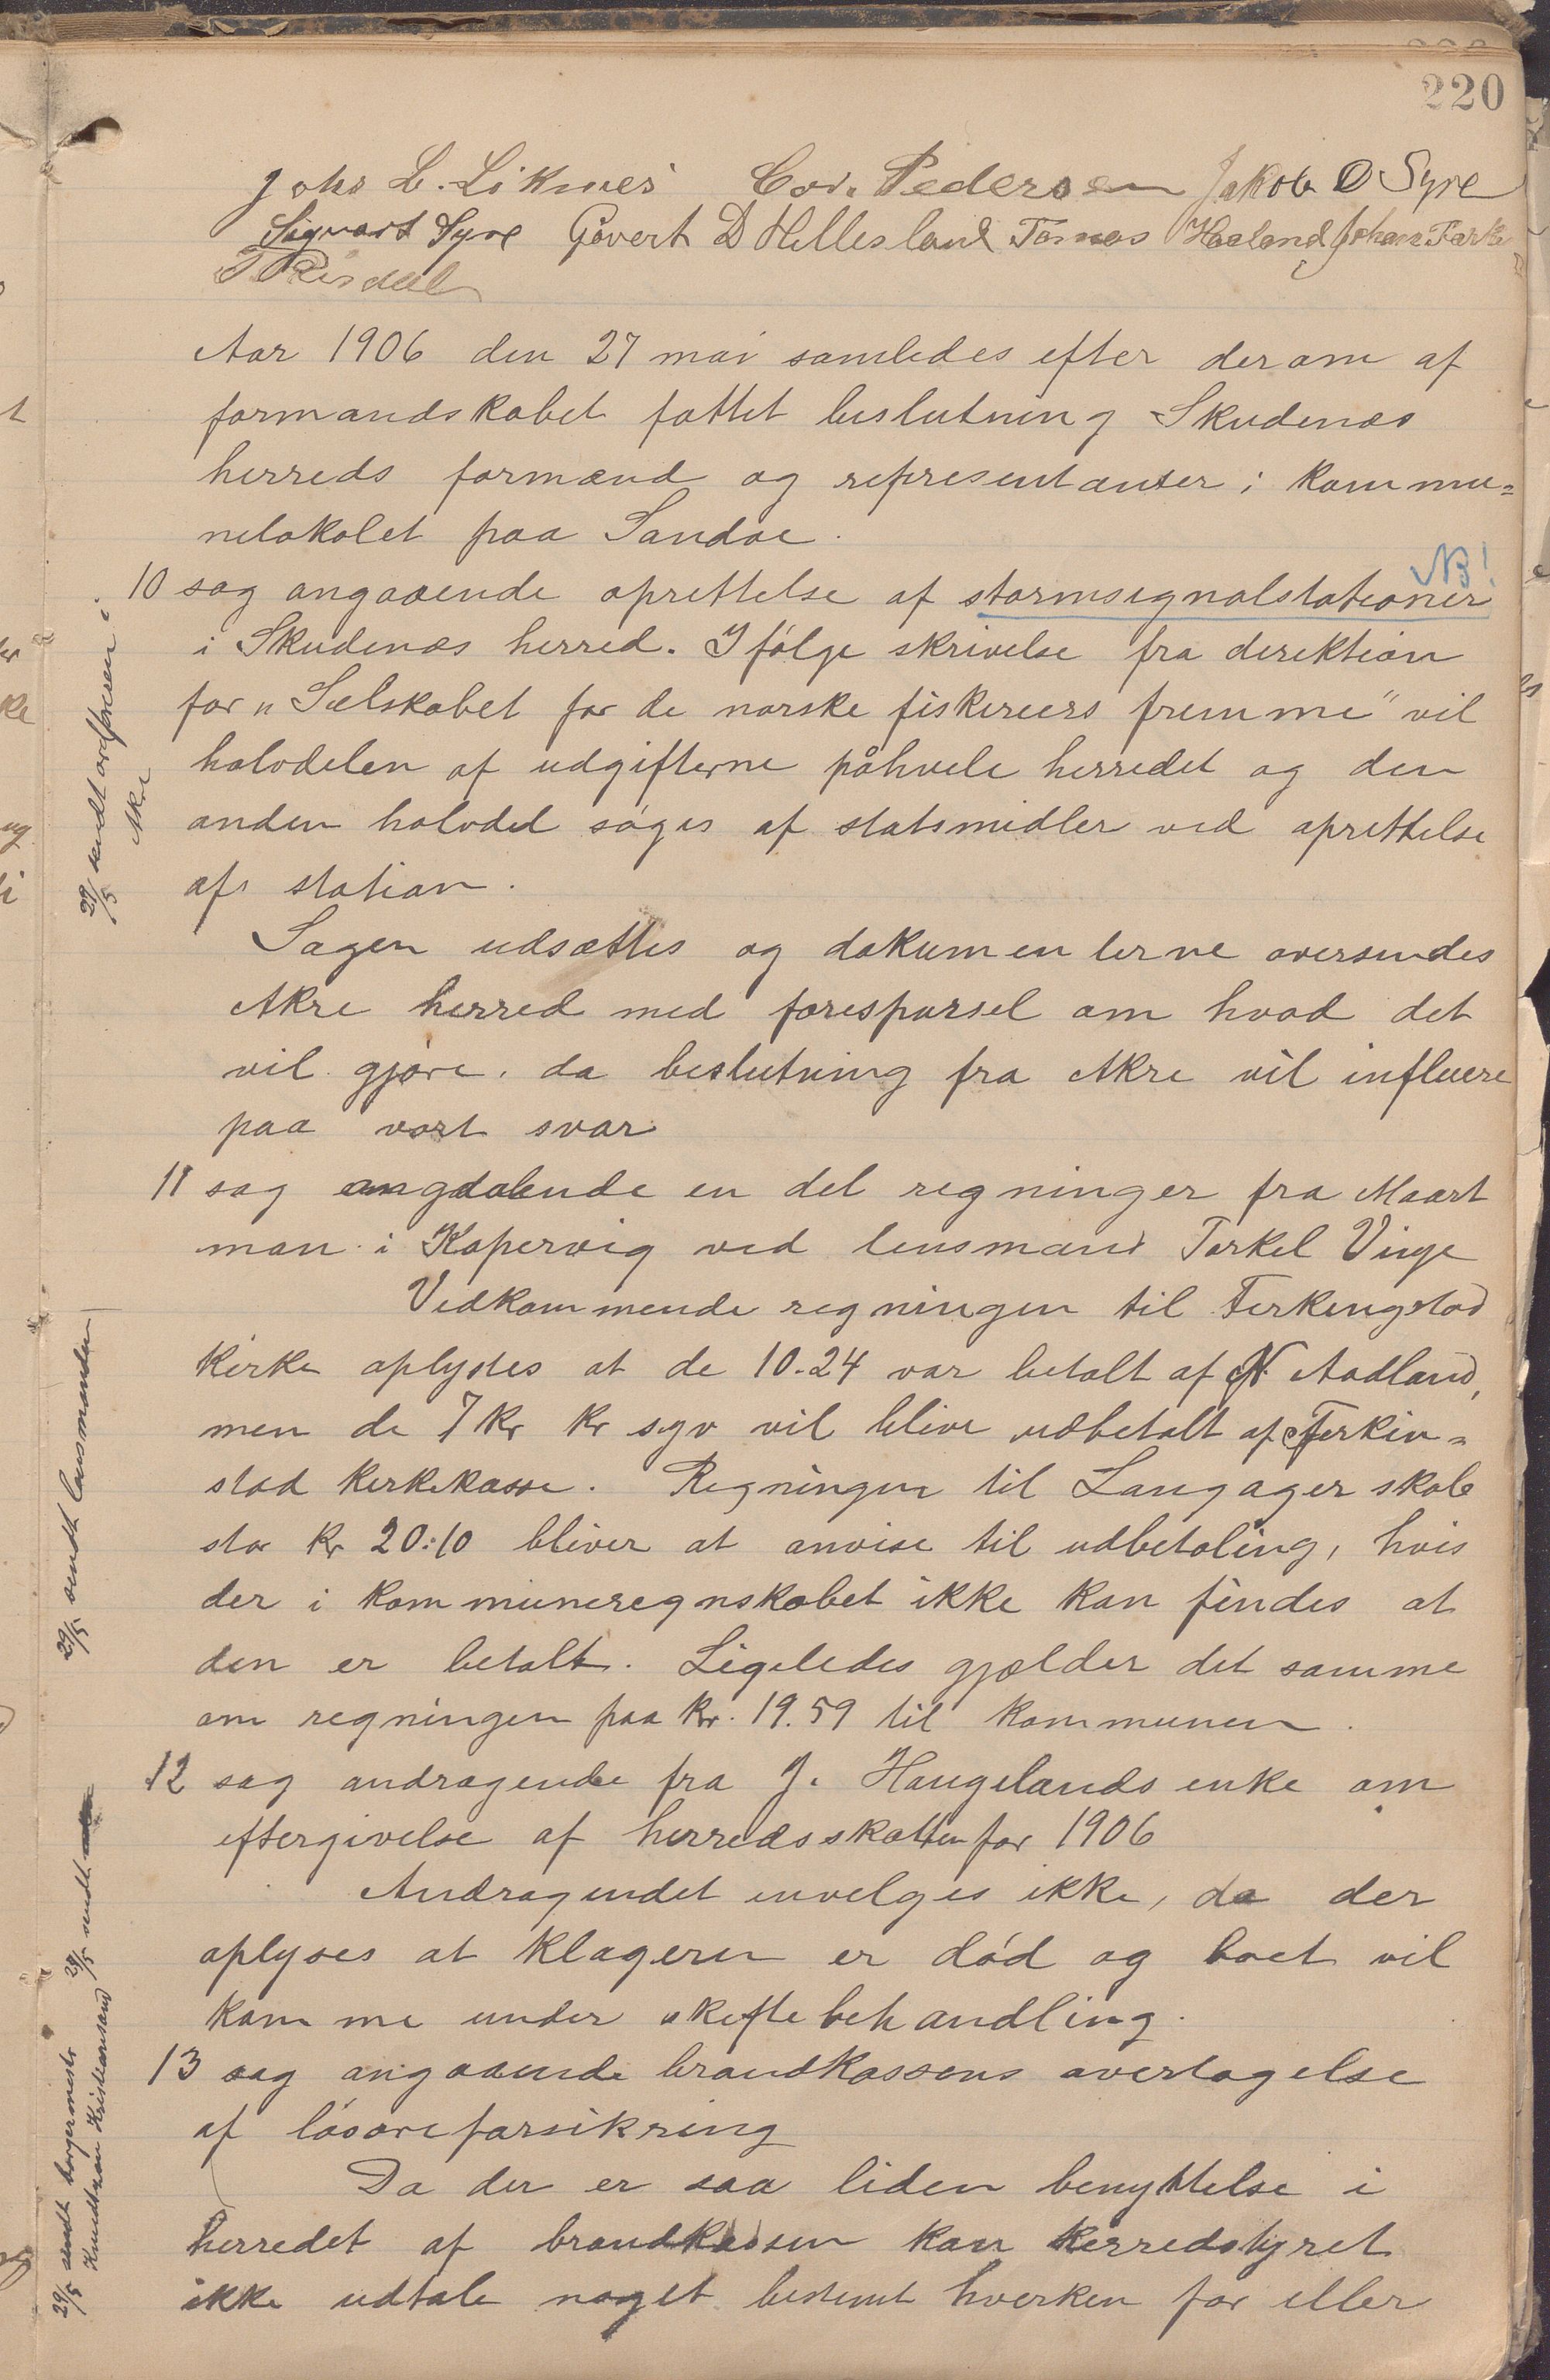 220
Johs L. Liknes Cor. Pedersen Jakob O Syre
Sigvart Syre Govert D Hillesland Tomas Haaland Johan Ferk
T Risdal
Aar 1906 den 27 mai samledes efter derom af
formandskabet fattet beslutning Skudenæs
herreds formænd og representanter i kommu=
nelokalet paa Sandve.
NB!
10 sag angaaende oprettelse af stormsignalstationer
i Skudenæs herred. Ifølge skrivelse fra direktion
for "Selskabet for de norske fiskeriers fremme" vil
halvdelen af udgifterne påhvile herredet og den
anden halvdel søges af statsmidler ved oprettelse
af station.
Sagen udsættes og dokumenterne oversendes
Akre herred med forespørsel om hvad det
vil gjøre, da beslutning fra Akre vil influere
paa vort svar
11 sag angaaende en del regninger fra Maart
man i Kopervig ved lensmand Torkel Vinje
Vedkommende regningen til Ferkingstad
kirke oplystes at de 10.24 var betalt af N. Aadland,
men de 7 kr kr syv vil blive udbetalt af Ferkin=
stad kirkekasse. Regningen til Langager skole
stor kr 20:10 bliver at anvise til udbetaling, hvis
der i kommuneregnskabet ikke kan findes at
den er betalt. Ligeledes gjælder det samme
om regningen paa kr. 19.59 til kommunen.
12 sag andragende fra J. Haugelands enke om
eftergivelse af herredsskatten for 1906
Andragendet invelges ikke, da der
oplyses at klageren er død og boet vil
komme under skiftebehandling.
13 sag angaaende brandkassens overtagelse
af løsøreforsikring
Da der er saa liden benyttelse i
herredet af brandkassen kan herredstyret
ikke udtale noget bestemt hverken for eller
29/5 sendt ordføreren i
Akre
29/5 sendt lensmanden
29/5 sendt
29/5 sendt borgermester
Knudtzon Kristiansand